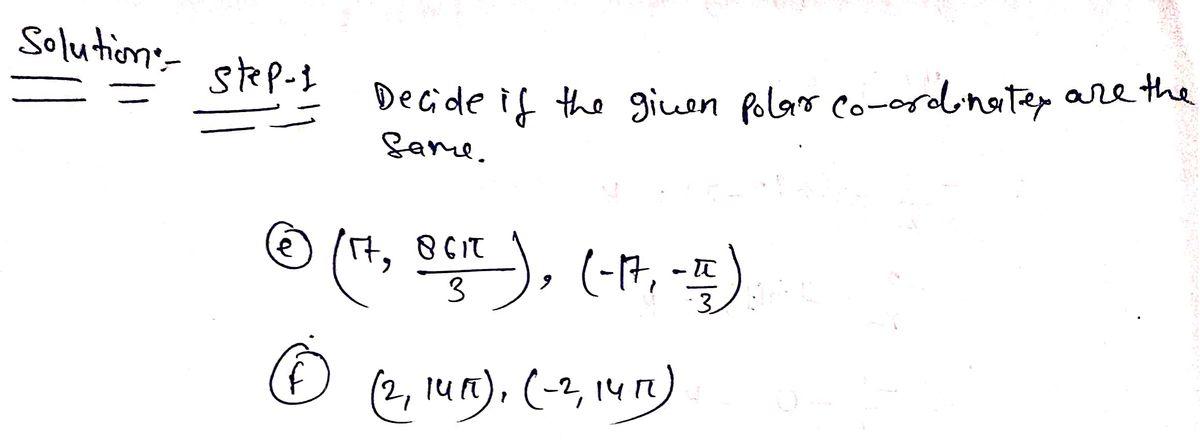 Solution:-
Step-1
Decide if the given polar co-ordinates are the
same.
(e) (17, 86π/3), (-17, -π/3)
(f) (2, 14π), (-2, 14π)